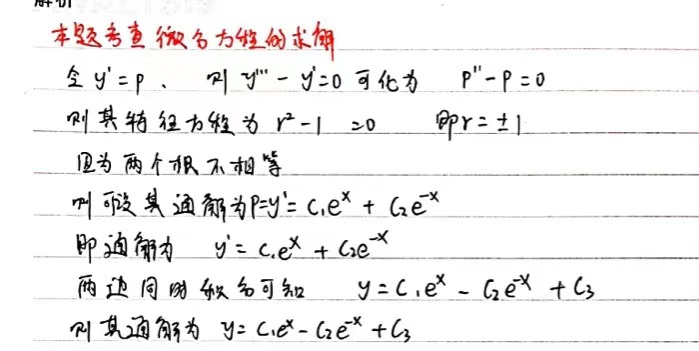 解析
本题考查微分方程的求解
令 y'=p、则 y'''-y'=0 可化为 p''-p=0
则其特征方程为 r²-1=0 即r=±1
因为两个根不相等
则可设其通解为P=y'=C₁eˣ+C₂e⁻ˣ
即通解为 y'=C₁eˣ+C₂e⁻ˣ
两边同时积分可知 y=C₁eˣ-C₂e⁻ˣ+C₃
则其通解为 y=C₁eˣ-C₂e⁻ˣ+C₃